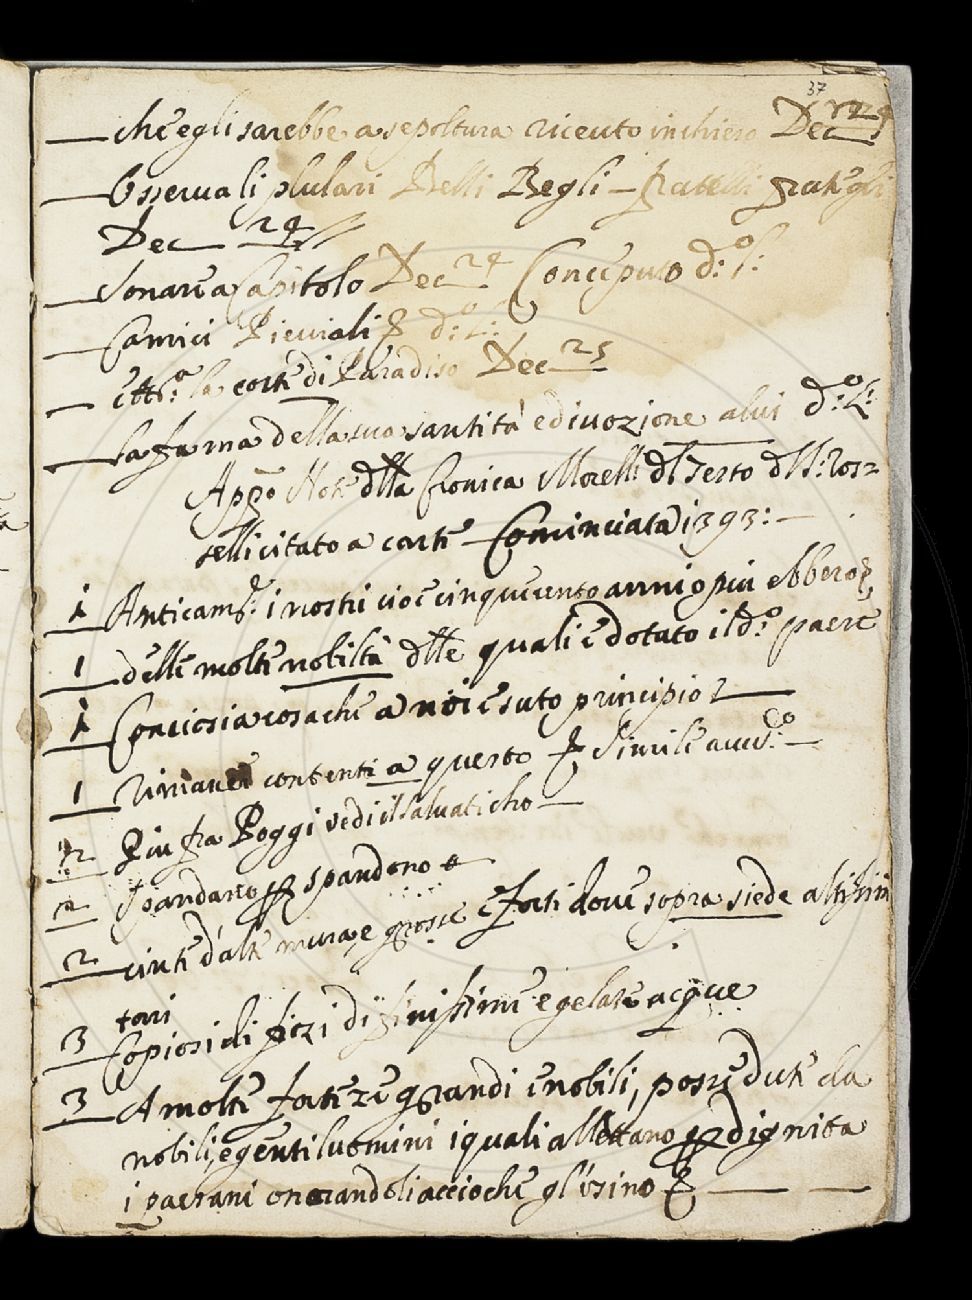 37
che egli sarebbe a sepoltura riceuto in chiesa Dec 24
Osserua li plulari Belli Begli – fratelli frategli
Dec 24
Sonare a Capitolo Dec 24 Conceputo d:o l:
Camici Pieuiali d:o l:
la corte di Paradiso Dec 25
La fama della sua santità e diuozione alui d:o l:
App:o Note dlla Cronica Morelli dl Testo
selli citato a carte – Cominciata i393: –
1 Anticam.e: i nostri cioe cinquecento anni o piu ebbero
1 delle molte nobiltà dlle quali è dotato il d:o paese
1 Conciosiacosache a noi è suto principio
1 Rimaner contenti a questo simile
2 Piu fra Poggi vedi il saluaticho –
2 Spandano spandono
2 cinte d'alte mura, e grosse e forti doue sopra siede altissim
torri
3 Copiosi di pozi di finissime e gelate acque
3 A molte forteze grandi e nobili, possedute da
nobili, e gentiluomini i quali allettano dignita
i paesani onorandoli accioche gl'isino